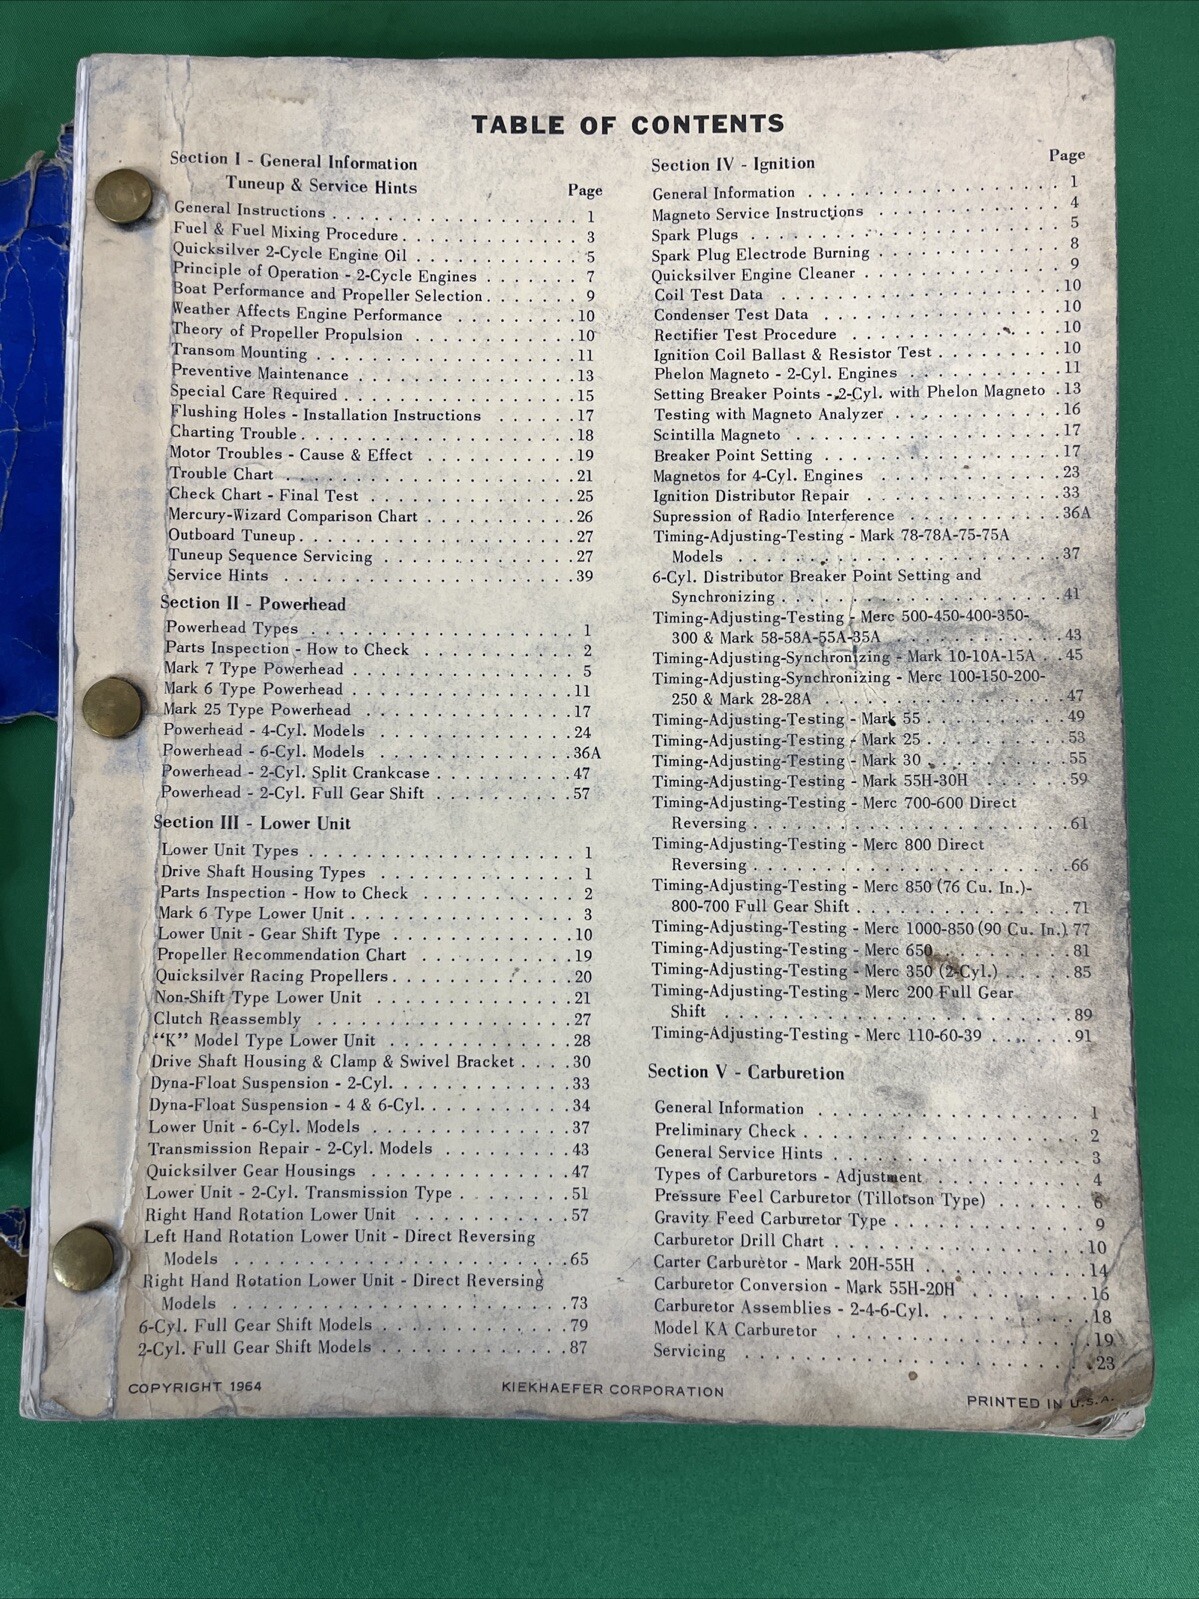 TABLE OF CONTENTS
Section I - General Information
Tuneup & Service Hints Page
General Instructions . . . . . . . . . . . . . . . . . . 1
Fuel & Fuel Mixing Procedure . . . . . . . . . . . . . 3
Quicksilver 2-Cycle Engine Oil . . . . . . . . . . . . 5
Principle of Operation - 2-Cycle Engines . . . . . . . 7
Boat Performance and Propeller Selection . . . . . . . 9
Weather Affects Engine Performance . . . . . . . . . 10
Theory of Propeller Propulsion . . . . . . . . . . . 10
Transom Mounting . . . . . . . . . . . . . . . . . . 11
Preventive Maintenance . . . . . . . . . . . . . . . 13
Special Care Required . . . . . . . . . . . . . . . . 15
Flushing Holes - Installation Instructions . . . . . . 17
Charting Trouble . . . . . . . . . . . . . . . . . . 18
Motor Troubles - Cause & Effect . . . . . . . . . . 19
Trouble Chart . . . . . . . . . . . . . . . . . . . . 21
Check Chart - Final Test . . . . . . . . . . . . . . 25
Mercury-Wizard Comparison Chart . . . . . . . . . . 26
Outboard Tuneup . . . . . . . . . . . . . . . . . . . 27
Tuneup Sequence Servicing . . . . . . . . . . . . . 27
Service Hints . . . . . . . . . . . . . . . . . . . . 39
Section II - Powerhead
Powerhead Types . . . . . . . . . . . . . . . . . . 1
Parts Inspection - How to Check . . . . . . . . . . . 2
Mark 7 Type Powerhead . . . . . . . . . . . . . . . 5
Mark 6 Type Powerhead . . . . . . . . . . . . . . . 11
Mark 25 Type Powerhead . . . . . . . . . . . . . . 17
Powerhead - 4-Cyl. Models . . . . . . . . . . . . . 24
Powerhead - 6-Cyl. Models . . . . . . . . . . . . . 36A
Powerhead - 2-Cyl. Split Crankcase . . . . . . . . . 47
Powerhead - 2-Cyl. Full Gear Shift . . . . . . . . . 57
Section III - Lower Unit
Lower Unit Types . . . . . . . . . . . . . . . . . . 1
Drive Shaft Housing Types . . . . . . . . . . . . . . 1
Parts Inspection - How to Check . . . . . . . . . . . 2
Mark 6 Type Lower Unit . . . . . . . . . . . . . . . 3
Lower Unit - Gear Shift Type . . . . . . . . . . . . 10
Propeller Recommendation Chart . . . . . . . . . . . 19
Quicksilver Racing Propellers . . . . . . . . . . . . 20
Non-Shift Type Lower Unit . . . . . . . . . . . . . 21
Clutch Reassembly . . . . . . . . . . . . . . . . . 27
"K" Model Type Lower Unit . . . . . . . . . . . . . 28
Drive Shaft Housing & Clamp & Swivel Bracket . . . . 30
Dyna-Float Suspension - 2-Cyl. . . . . . . . . . . . 33
Dyna-Float Suspension - 4 & 6-Cyl. . . . . . . . . . 34
Lower Unit - 6-Cyl. Models . . . . . . . . . . . . . 37
Transmission Repair - 2-Cyl. Models . . . . . . . . . 43
Quicksilver Gear Housings . . . . . . . . . . . . . 47
Lower Unit - 2-Cyl. Transmission Type . . . . . . . . 51
Right Hand Rotation Lower Unit . . . . . . . . . . . 57
Left Hand Rotation Lower Unit - Direct Reversing
Models . . . . . . . . . . . . . . . . . . . . . . 65
Right Hand Rotation Lower Unit - Direct Reversing
Models . . . . . . . . . . . . . . . . . . . . . . 73
6-Cyl. Full Gear Shift Models . . . . . . . . . . . . 79
2-Cyl. Full Gear Shift Models . . . . . . . . . . . . 87
Section IV - Ignition Page
General Information . . . . . . . . . . . . . . . . . 1
Magneto Service Instructions . . . . . . . . . . . . . 4
Spark Plugs . . . . . . . . . . . . . . . . . . . . . 5
Spark Plug Electrode Burning . . . . . . . . . . . . . 8
Quicksilver Engine Cleaner . . . . . . . . . . . . . . 9
Coil Test Data . . . . . . . . . . . . . . . . . . . 10
Condenser Test Data . . . . . . . . . . . . . . . . 10
Rectifier Test Procedure . . . . . . . . . . . . . . 10
Ignition Coil Ballast & Resistor Test . . . . . . . . . 10
Phelon Magneto - 2-Cyl. Engines . . . . . . . . . . . 11
Setting Breaker Points - 2-Cyl. with Phelon Magneto . 13
Testing with Magneto Analyzer . . . . . . . . . . . . 16
Scintilla Magneto . . . . . . . . . . . . . . . . . . 17
Breaker Point Setting . . . . . . . . . . . . . . . . 17
Magnetos for 4-Cyl. Engines . . . . . . . . . . . . . 23
Ignition Distributor Repair . . . . . . . . . . . . . 33
Supression of Radio Interference . . . . . . . . . . 36A
Timing-Adjusting-Testing - Mark 78-78A-75-75A
Models . . . . . . . . . . . . . . . . . . . . . . 37
6-Cyl. Distributor Breaker Point Setting and
Synchronizing . . . . . . . . . . . . . . . . . . . 41
Timing-Adjusting-Testing - Merc 500-450-400-350-
300 & Mark 58-58A-55A-35A . . . . . . . . . . . . 43
Timing-Adjusting-Synchronizing - Mark 10-10A-15A . . 45
Timing-Adjusting-Synchronizing - Merc 100-150-200-
250 & Mark 28-28A . . . . . . . . . . . . . . . . 47
Timing-Adjusting-Testing - Mark 55 . . . . . . . . . 49
Timing-Adjusting-Testing - Mark 25 . . . . . . . . . 53
Timing-Adjusting-Testing - Mark 30 . . . . . . . . . 55
Timing-Adjusting-Testing - Mark 55H-30H . . . . . . 59
Timing-Adjusting-Testing - Merc 700-600 Direct
Reversing . . . . . . . . . . . . . . . . . . . . . 61
Timing-Adjusting-Testing - Merc 800 Direct
Reversing . . . . . . . . . . . . . . . . . . . . . 66
Timing-Adjusting-Testing - Merc 850 (76 Cu. In.)-
800-700 Full Gear Shift . . . . . . . . . . . . . . 71
Timing-Adjusting-Testing - Merc 1000-850 (90 Cu. In.) 77
Timing-Adjusting-Testing - Merc 650 . . . . . . . . . 81
Timing-Adjusting-Testing - Merc 350 (2-Cyl.) . . . . . 85
Timing-Adjusting-Testing - Merc 200 Full Gear
Shift . . . . . . . . . . . . . . . . . . . . . . . 89
Timing-Adjusting-Testing - Merc 110-60-39 . . . . . . 91
Section V - Carburetion
General Information . . . . . . . . . . . . . . . . . 1
Preliminary Check . . . . . . . . . . . . . . . . . . 2
General Service Hints . . . . . . . . . . . . . . . . 3
Types of Carburetors - Adjustment . . . . . . . . . . 4
Pressure Feel Carburetor (Tillotson Type) . . . . . . 6
Gravity Feed Carburetor Type . . . . . . . . . . . . 9
Carburetor Drill Chart . . . . . . . . . . . . . . . 10
Carter Carburetor - Mark 20H-55H . . . . . . . . . . 14
Carburetor Conversion - Mark 55H-20H . . . . . . . . 16
Carburetor Assemblies - 2-4-6-Cyl. . . . . . . . . . 18
Model KA Carburetor . . . . . . . . . . . . . . . . 19
Servicing . . . . . . . . . . . . . . . . . . . . . . 23
COPYRIGHT 1964 KIEKHAEFER CORPORATION PRINTED IN U.S.A.